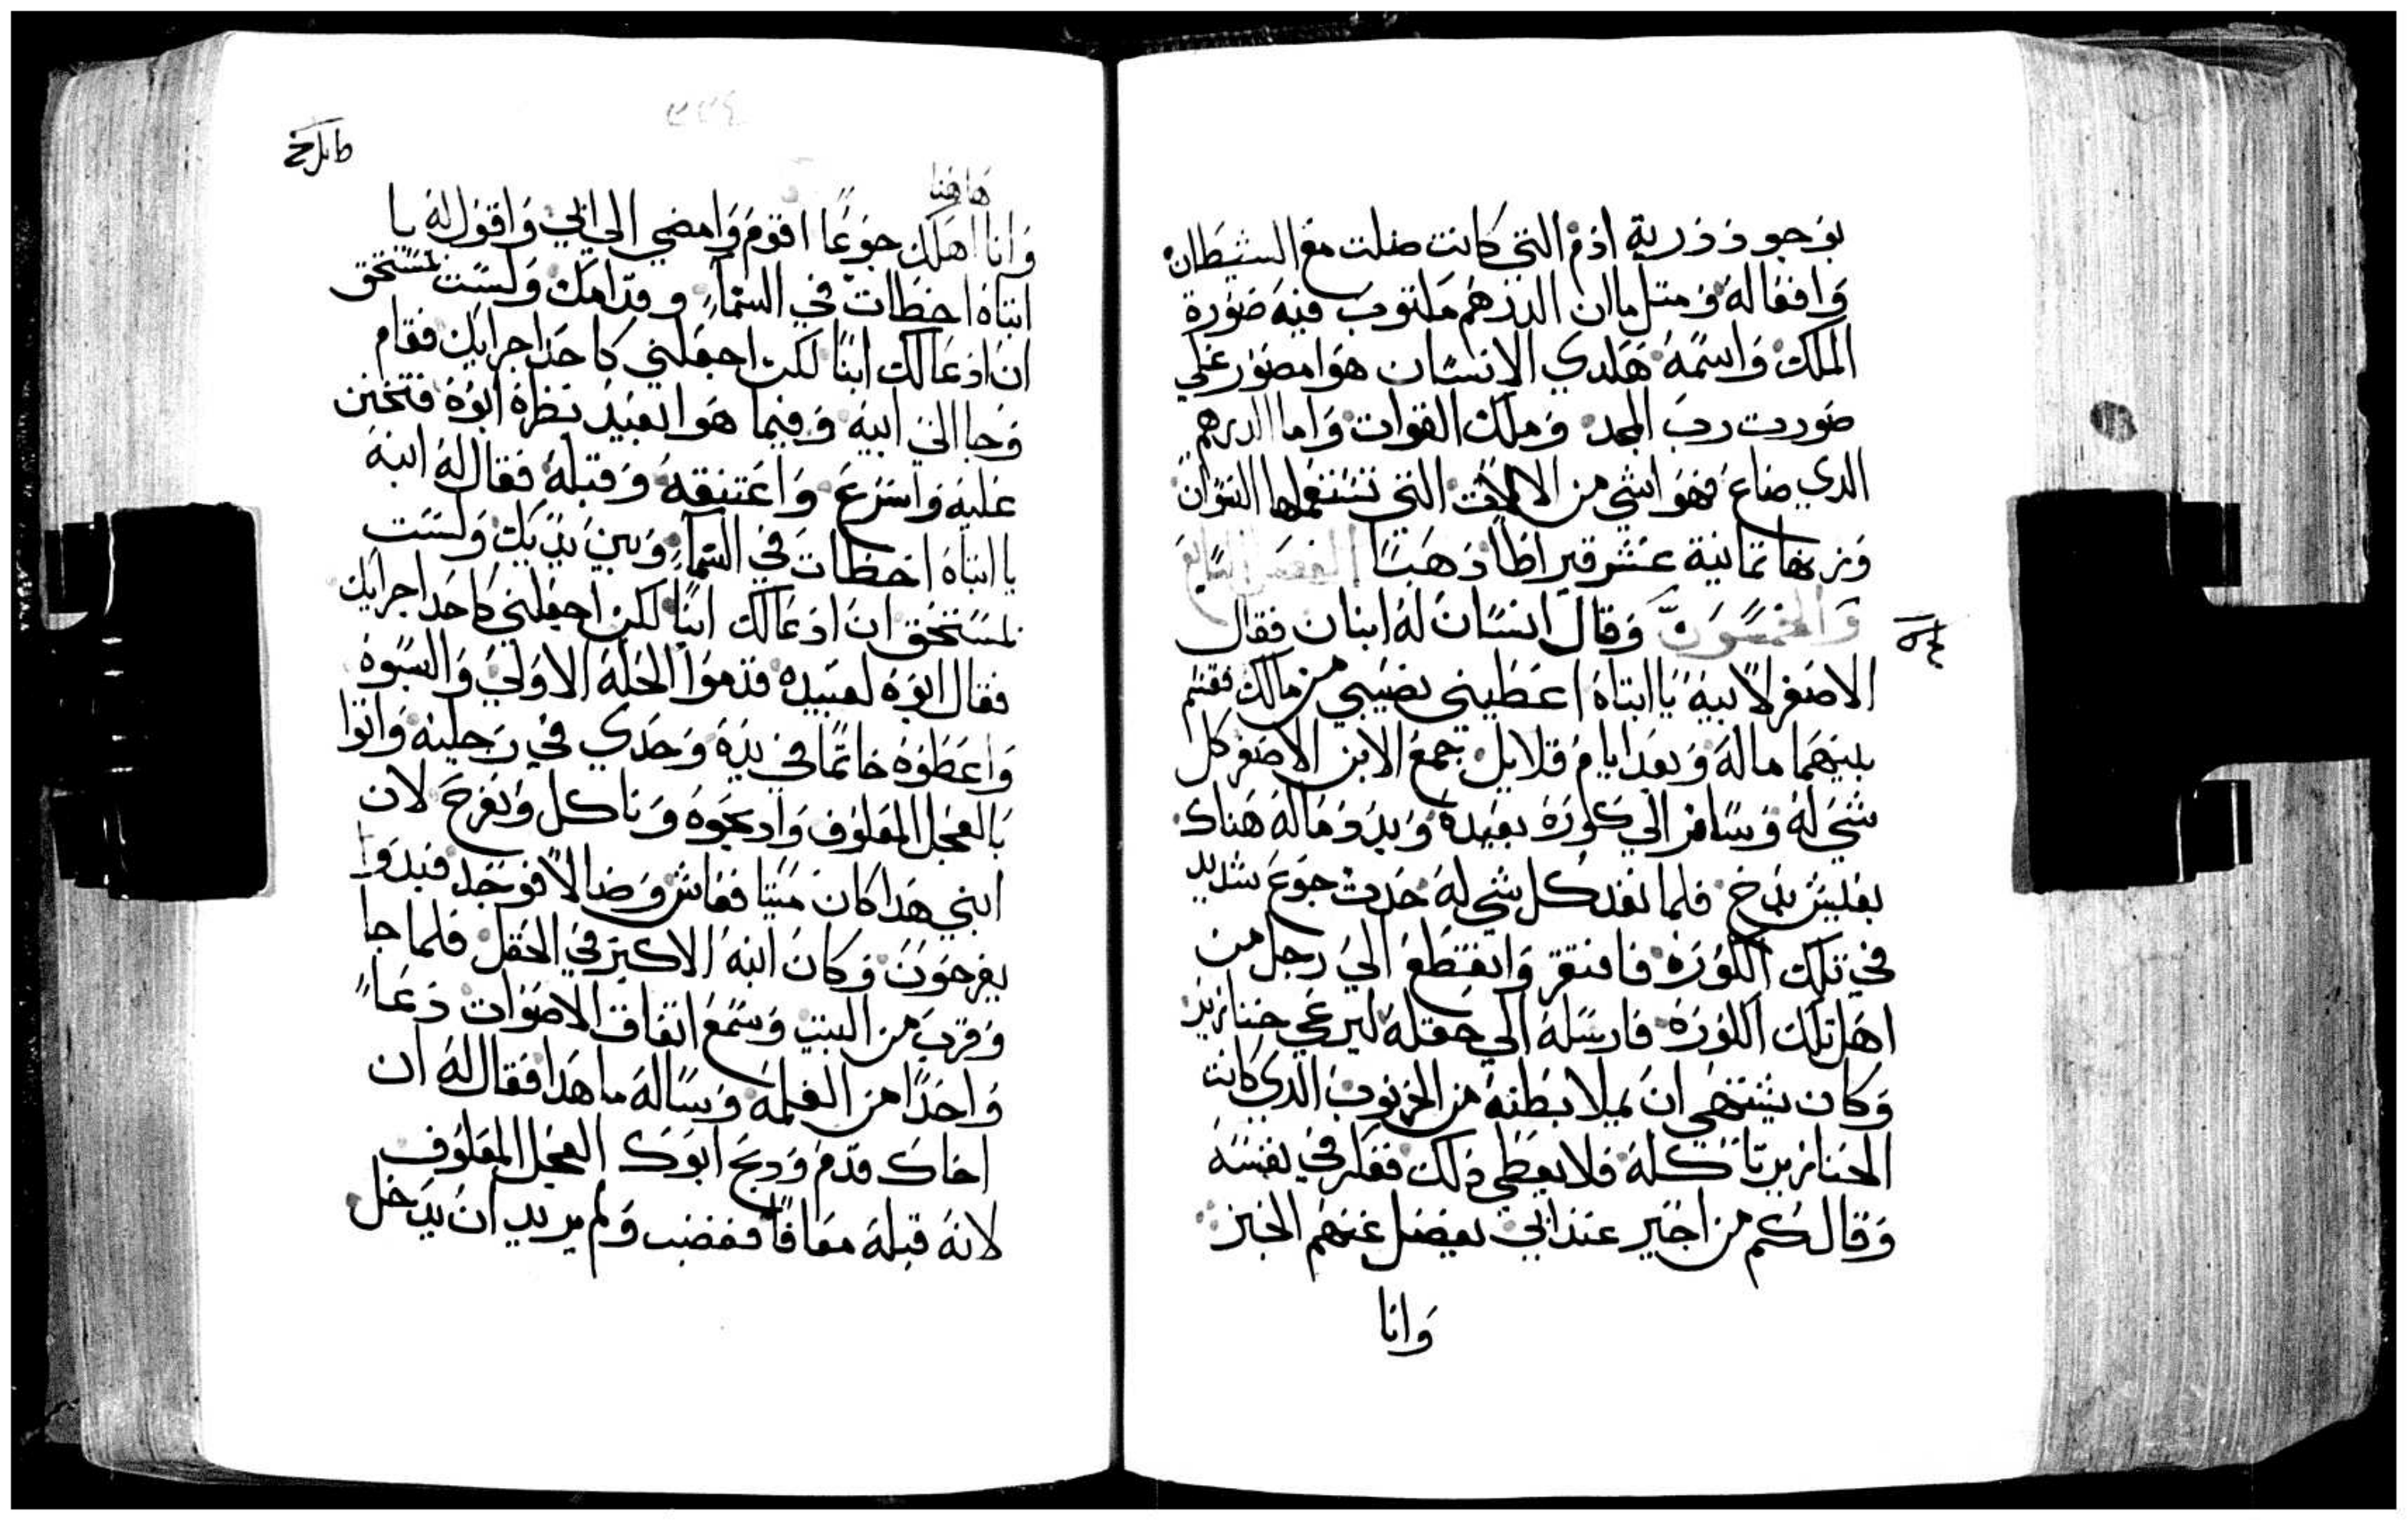 بوجود ذرية ادم التي كانت ضلت مع الشيطان
وافقاله ومتل ماان الدرهم مكتوب فيه صورة
الملك واسمه هكدي الانسان هوا مصور علي
صورت رب المجد وملك القوات واما الدرهم
الدي ضاع فهو اشي من الالات التي تستعملها النسوان
وزنها تمانية عشر قيراطا دهبا الفصل السابع
والخمسون وقال انسان له ابنان فقال
الاصغر لابيه يا ابتاه اعطيني نصيبي من مالك فقسم
بينهما ماله وبعد ايام قلايل جمع الابن الاصغر كل
شي له وسافر الي كورة بعيدة وبدد ماله هناك
بعيش بدخ فلما نفد كل شي له حدت جوع شديد
في تلك الكورة فافتقر وانقطع الي رجل من
اهل تلك الكورة فارسله الي حقله ليرعي خنازير
وكان يشتهي ان يملا بطنه من الخرنوب الدي كانت
الخنازير تاكله فلا يعطي دلك ففكر في نفسه
وقال كم من اجير عند ابي يفضل عنهم الخبز
وانا
هاهنا
وانا اهلك جوعا اقوم وامضي الي ابي واقول له يا
ابتاه اخطات في السماء وقدامك ولست بمستحق
ان ادعا لك ابنا لكن اجعلني كاحد اجرايك فقام
وجا الي ابيه وفيما هوا بعيد نظره ابوه فتحنن
عليه واسرع واعتنقه وقبله فقال له ابنه
يا ابتاه اخطات في السماء وبين يديك ولست
بمستحق ان ادعا لك ابنا لكن اجعلني كاحد اجرايك
فقال ابوه لعبيده قدموا الحلة الاولي والبسوه
واعطوه خاتما في يده وحدي في رجليه واتوا
بالعجل المعلوف وادبحوه وناكل ونفرح لان
ابني هدا كان ميتا فعاش وضالا فوجد فبدوا
يفرحون وكان ابنه الاكبر في الحقل فلما جا
وقرب من البيت وسمع اتفاق الاصوات دعا
واحدا من الغلمه وساله ما هدا فقال له ان
اخاك قدم ودبح ابوك العجل المعلوف
لانه قبله معافا فغضب ولم يريد ان يدخل